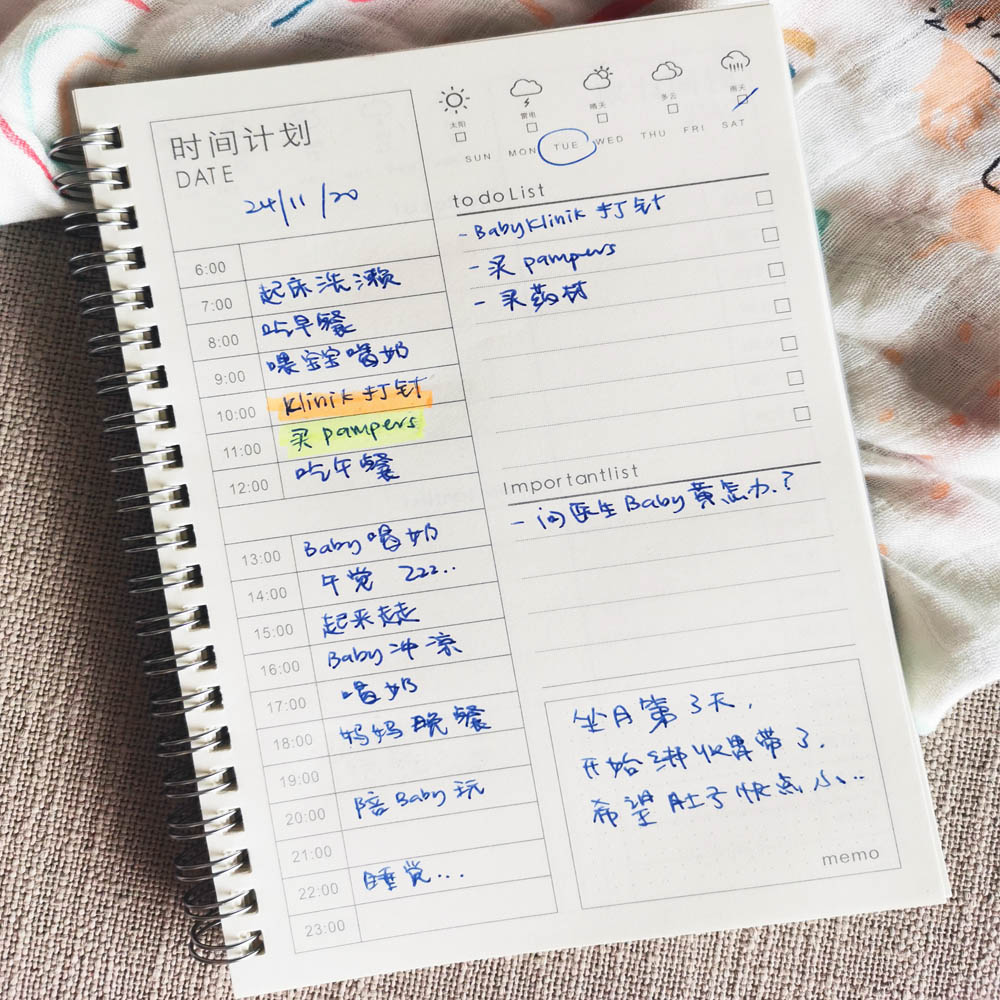 时间计划
DATE
24/11/20
6:00
7:00 起床洗濑
8:00 吃早餐
9:00 喂宝宝喝奶
10:00 Klinik 打针
11:00 买 pampers
12:00 吃午餐
13:00 Baby 喝奶
14:00 午觉 zzz..
15:00 起来走走
16:00 Baby 冲凉
17:00 喝奶
18:00 妈妈晚餐
19:00
20:00 陪Baby玩
21:00
22:00 睡觉...
23:00
太阳 雷电 晴天 多云 雨天
SUN MON TUE WED THU FRI SAT
todoList
- Baby Klinik 打针
- 买 pampers
- 买药材
Importantlist
- 问医生 Baby 黄怎办.?
坐月第3天,
开始绑收胃带了.
希望肚子快点小...
memo